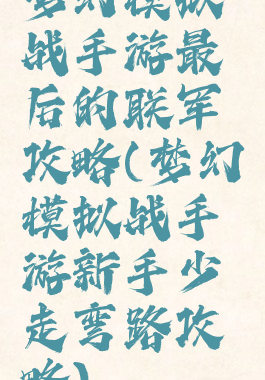 梦幻模拟
战手游最
后的联军
攻略(梦幻
模拟战手
游新手少
走弯路攻
略)